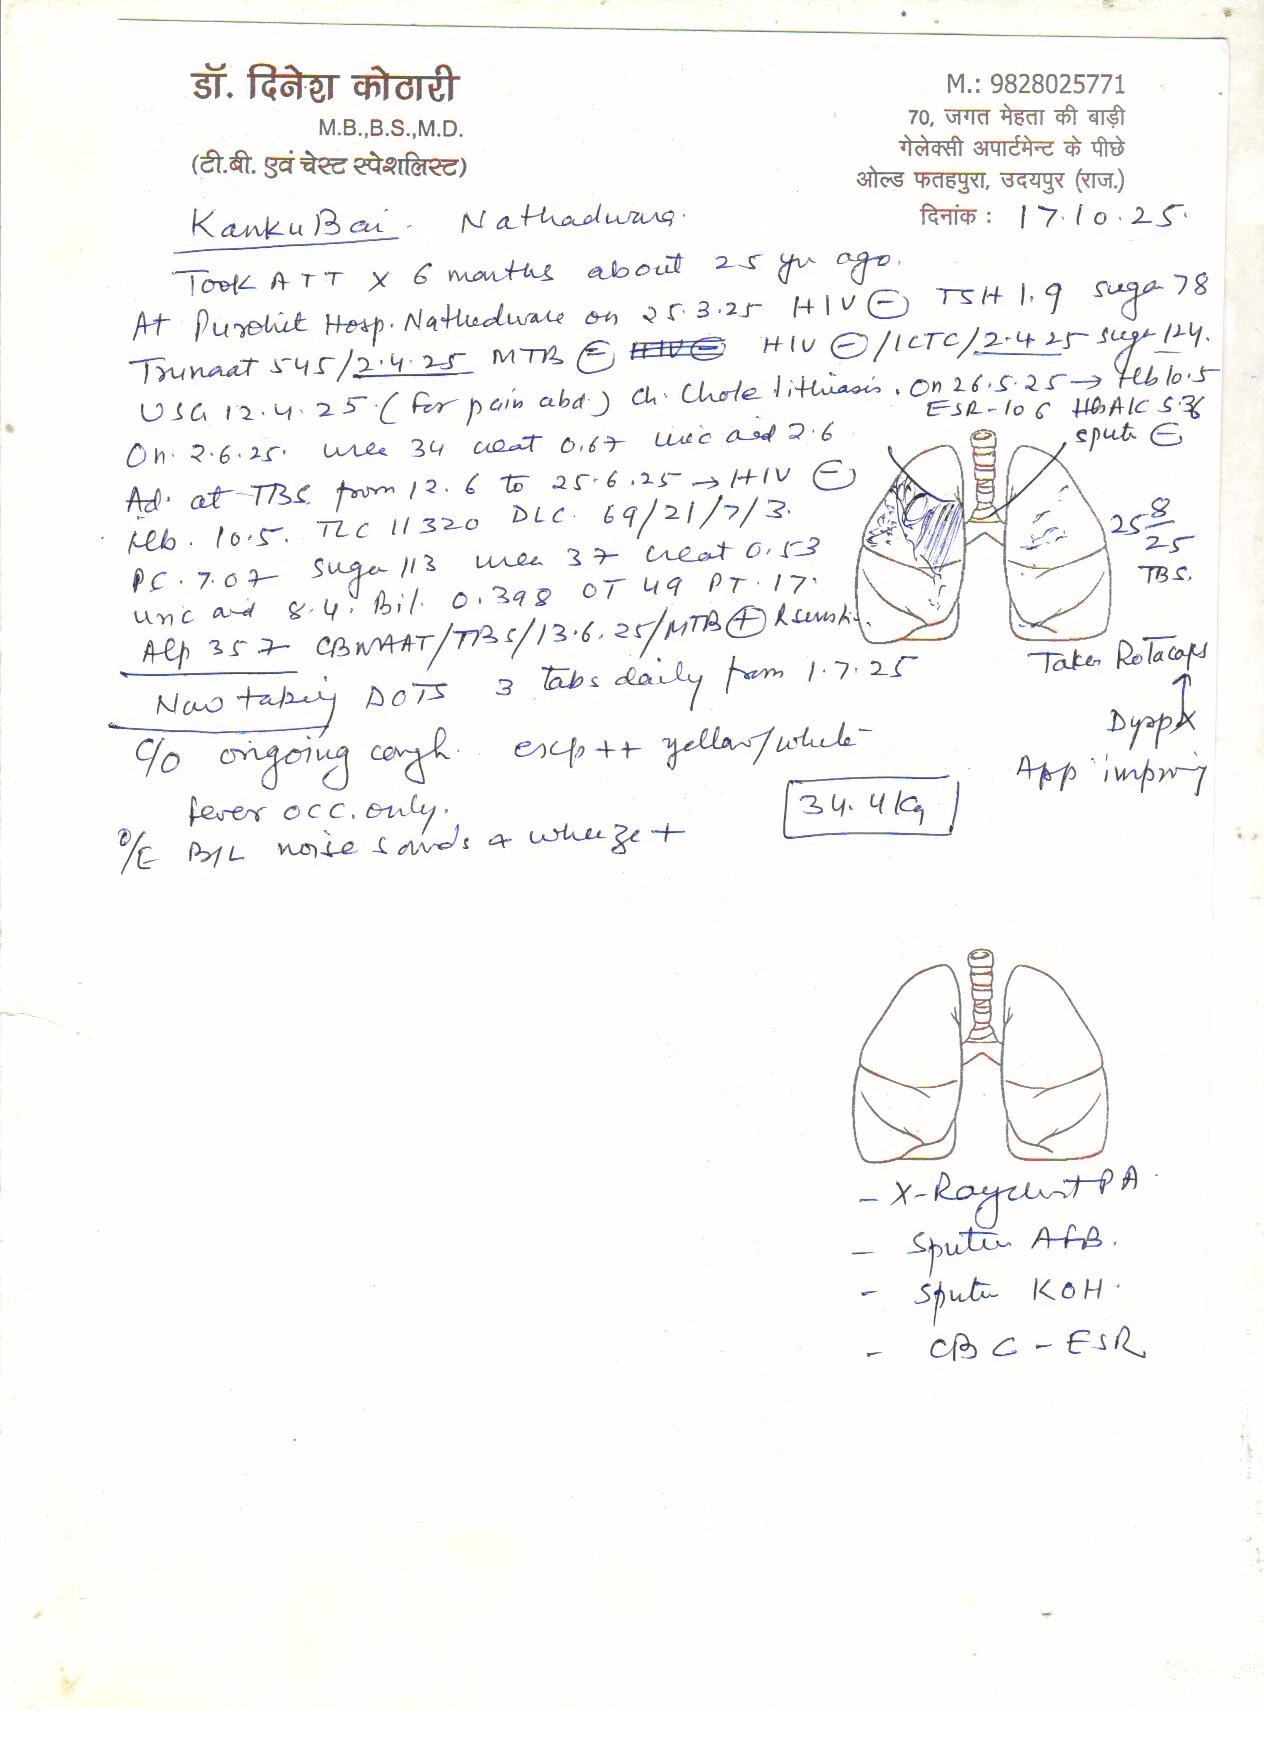 डॉ. दिनेश कोठारी
M.B.,B.S.,M.D.
(टी.बी. एवं चेस्ट स्पेशलिस्ट)
M.: 9828025771
70, जगत मेहता की बाड़ी
गेलेक्सी अपार्टमेन्ट के पीछे
ओल्ड फतहपुरा, उदयपुर (राज.)
दिनांक : 17.10.25.
Kanku Bai. Nathadwara.
Took ATT X 6 months about 25 yr ago.
At Purohit Hosp. Nathadwara on 25.3.25 HIV ⊖ TSH 1.9 suga 78
Trunaat 545/2.4.25 MTB ⊖ HIV ⊖ HIV ⊖/ICTC/2.4.25 suga 124.
USG 12.4.25 (for pain abd.) Ch. Cholelithiasis. On 26.5.25 → Hb 10.5
ESR-106 HbA1C 5.36
sputu ⊖
On. 2.6.25. urea 34 creat 0.67 uric acid 2.6
Ad. at TBS from 12.6 to 25.6.25 → HIV ⊖
Hb. 10.5. TLC 11320 DLC. 69/21/7/3.
PC. 7.07 suga 113 urea 37 creat 0.53
uric acid 8.4. Bil. 0.398 OT 49 PT. 17.
Alp 357 CBNAAT/TBS/13.6.25/MTB ⊕ R sensitiv.
25 8/25
TBS.
Taken Rotacaps
Now taking DOTS 3 tabs daily from 1.7.25
Dysp X
C/O ongoing cough. exp ++ yellow/white
App improvig
fever occ. only.
34.4 Kg
O/E B/L noise sounds & wheeze +
- X-Ray chest PA.
- Sputum AFB.
- Sputum KOH.
- CBC - ESR